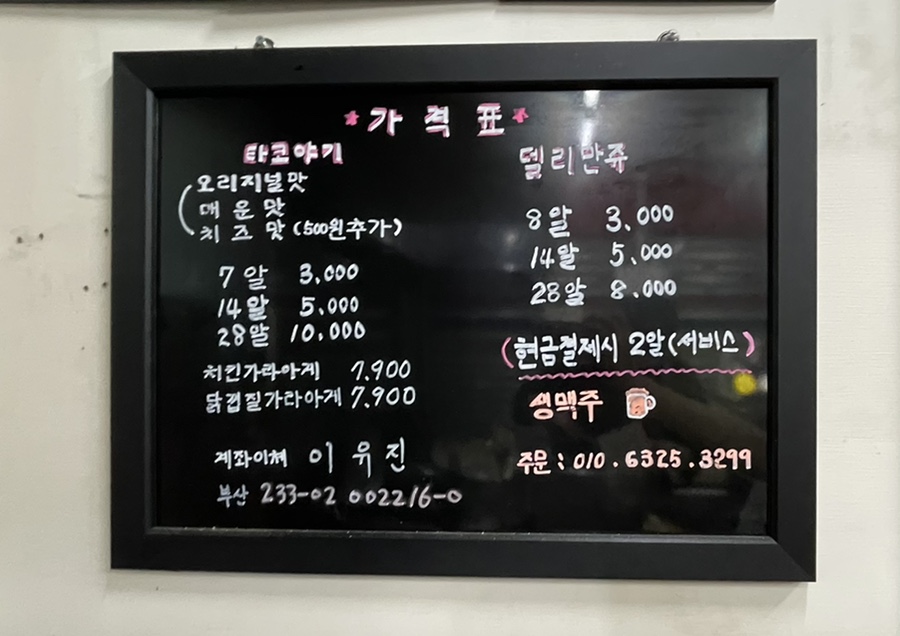 *가격표*
타코야기
오리지널맛
매운맛
치즈맛 (500원추가)
7알 3,000
14알 5,000
28알 10,000
치킨가라아게 7.900
닭껍질가라아게 7.900
계좌이체 이유진
부산 233-02 002216-0
델리만쥬
8알 3,000
14알 5,000
28알 8,000
(현금결제시 2알(서비스)
생맥주
주문 : 010.6325.3299